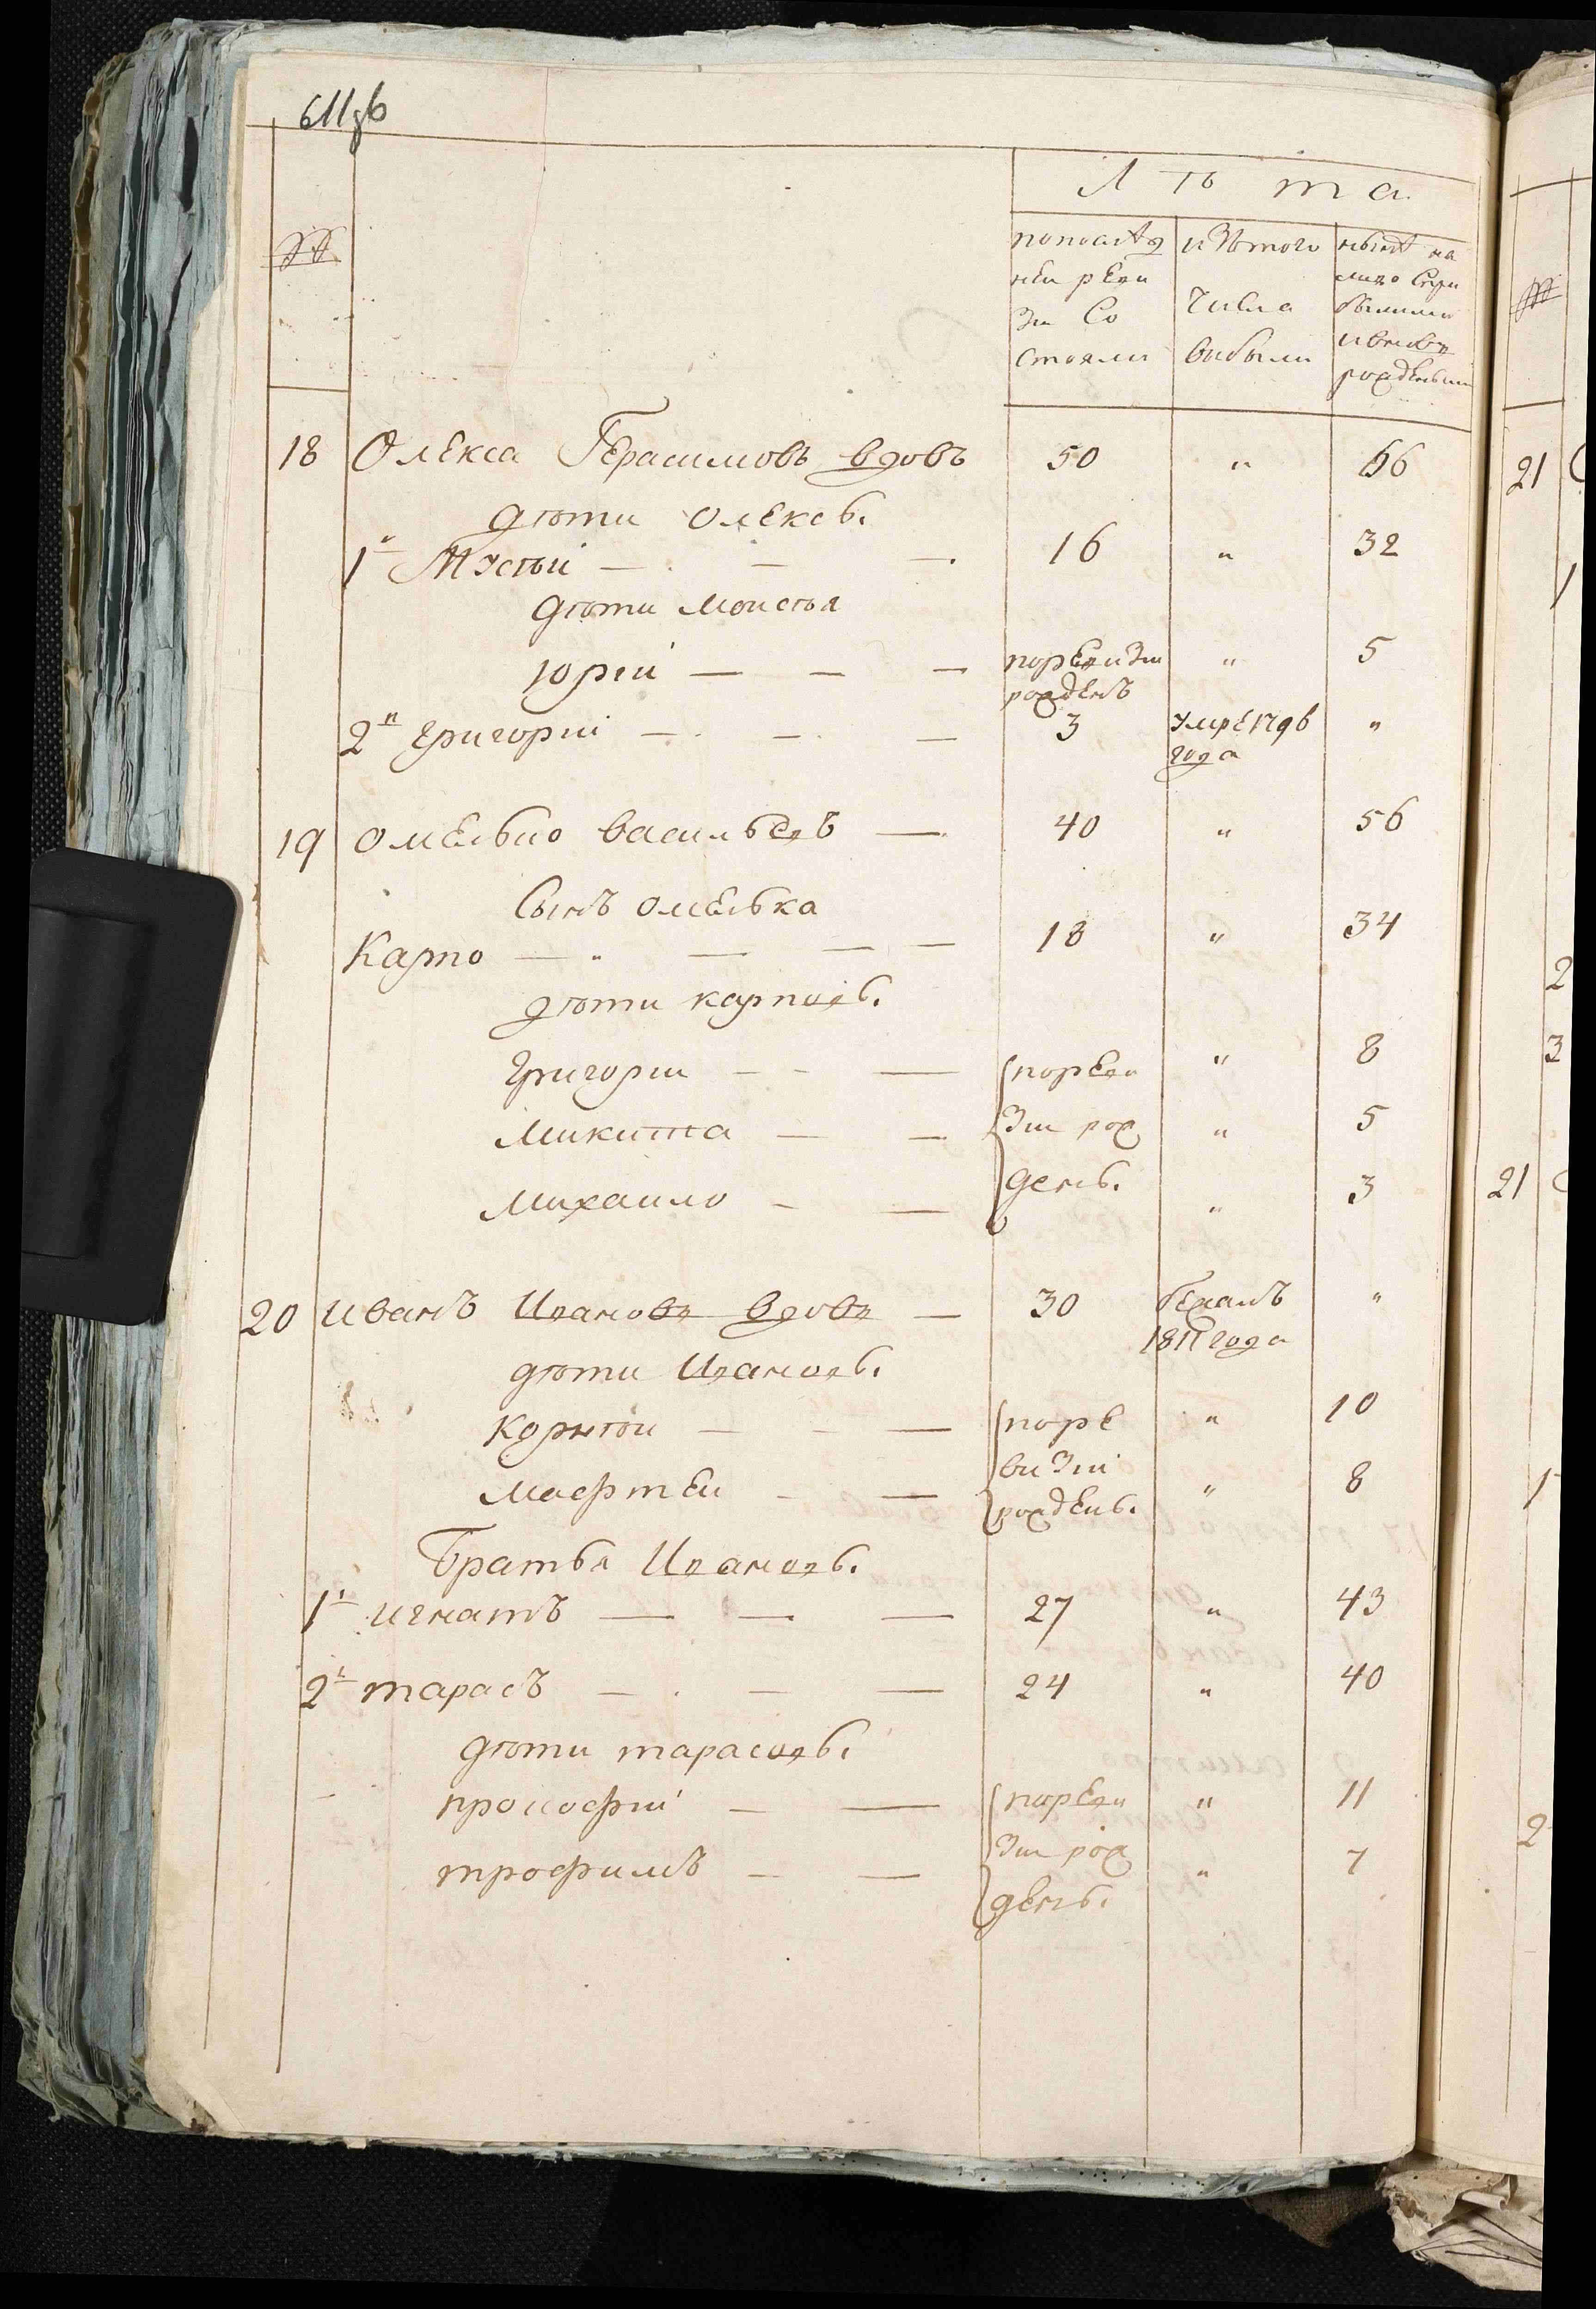 611зв
Лѣта
№
по послѣд
ней реви
зіи со
стояли
изъ того
числа
выбыли
нынѣ на
лицо съ при
былыми
и вновь
рожденными
18 Олекса Герасимовъ вдовъ 50 " 66
дѣти Олексы.
1й Мусѣй — — — 16 " 32
дѣти Моисѣя
Юрій — — — по ревизіи рожденъ " 5
2й Григорій — — — 3 умре 179в года "
19 Омелько Васильевъ — 40 " 56
Сынъ Омелька
Карпо — — — — 18 " 34
дѣти карповы.
Григорій — — — по реви " 8
Микита — — зіи рож " 5
Михайло — — дены. " 3
20 Иванъ Ивановъ вдовъ — 30 бежалъ 1811 года "
дѣти Ивановы.
Корнѣй — — — по ре " 10
Мафтей — — визіи рождены. " 8
Братья Ивановы.
1й игнатъ — — — 27 " 43
2й тарасъ — — — 24 " 40
дѣти тарасовы.
прокофій — — по реви " 11
трофимъ — — зіи рож " 7
дены.
21
1
2
3
21
1
2